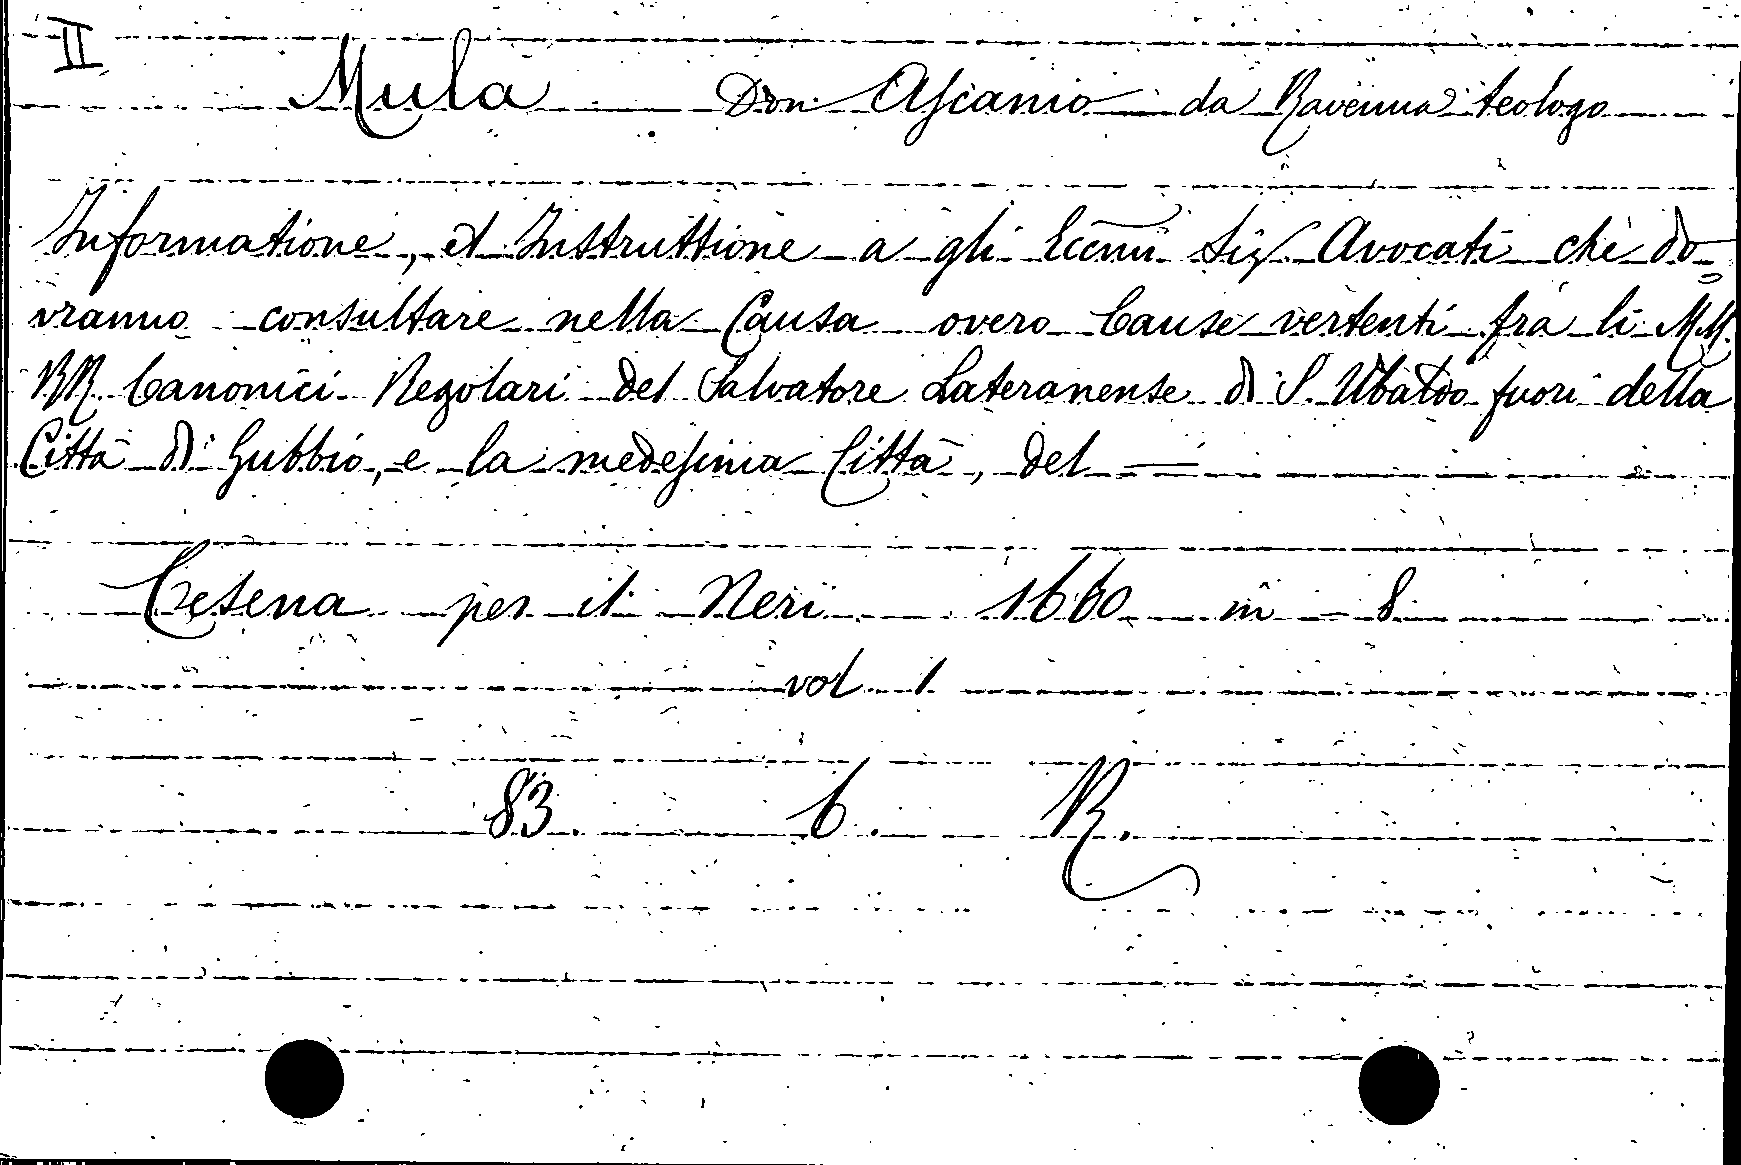 II
Mula Don Ascanio da Ravenna teologo
Informatione, et Instruttione a gli Eccmi Sig Avocati che do=
vranno consultare nella Causa overo Cause vertenti fra li MM.
RR. Canonici Regolari del Salvatore Lateranense di S. Ubaldo fuori della
Città di Gubbio, e la medesima Città, del =
Cesena per il Neri 1660 in - 8
vol 1
83. 6. R.